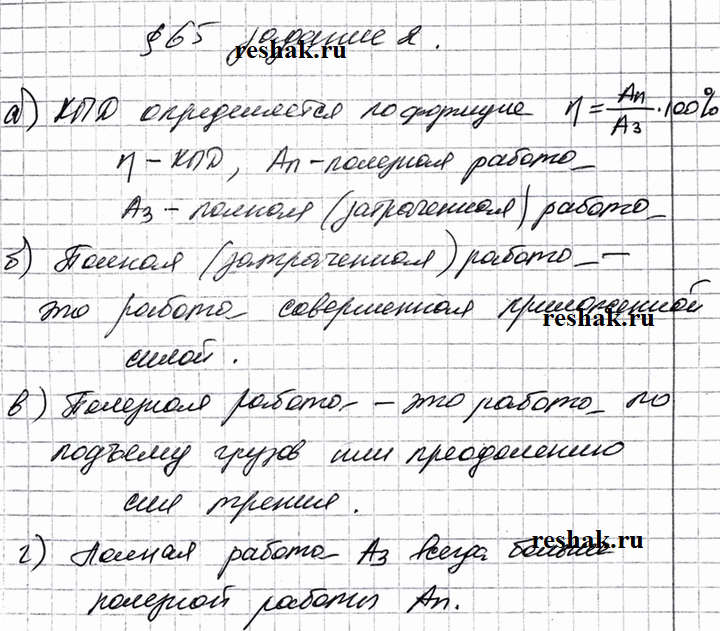 §65 задание 2.
reshak.ru
а) КПД определяется по формуле η = Aп/Aз · 100%
η – КПД, Aп – полезная работа
Aз – полная (затраченная) работа
б) Полная (затраченная) работа –
это работа совершенная приложенной
reshak.ru
силой.
в) Полезная работа – это работа по
подъему грузов или преодолению
сил трения.
reshak.ru
г) Полная работа Aз всегда больше
полезной работы Aп.